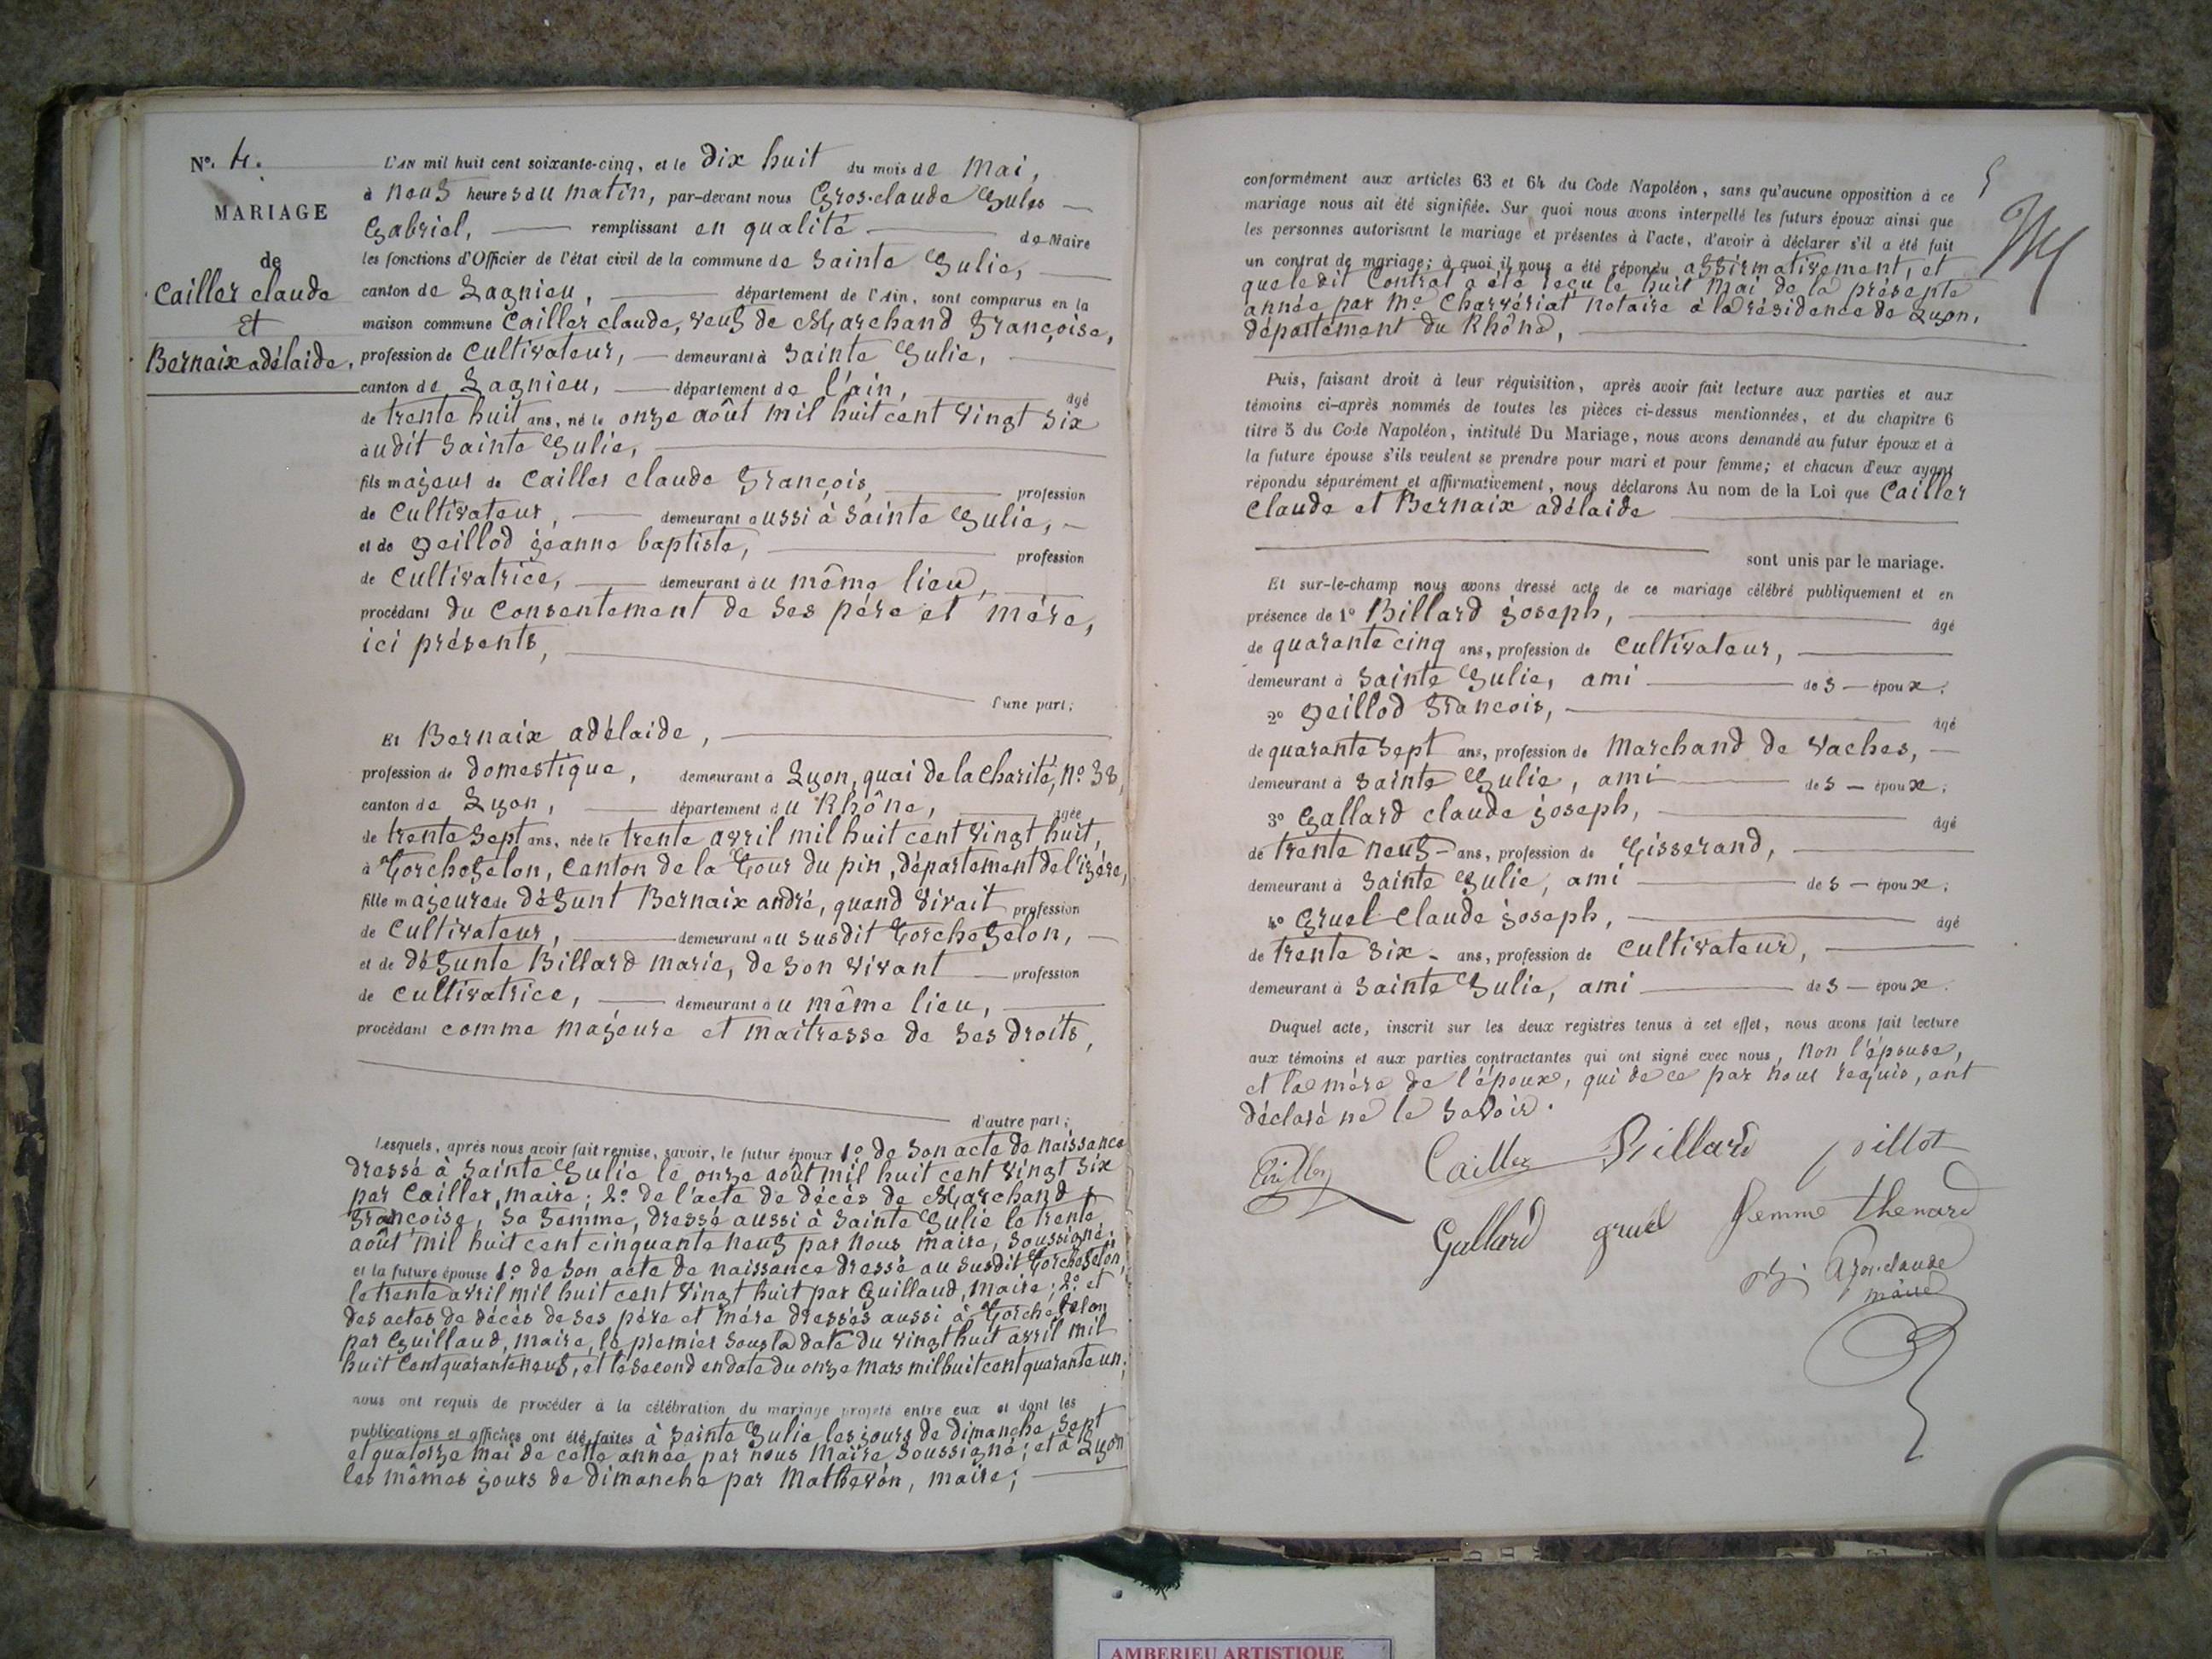 N°. 4.
MARIAGE
de
Cailler claude
Et
Bernaix adélaide.
L'AN mil huit cent soixante-cinq, et le dix huit du mois de Mai,
à neuf heures du matin, par-devant nous Gros-claude Jules
Gabriel, remplissant en qualité de Maire
les fonctions d'Officier de l'état civil de la commune de Sainte Julie,
canton de Lagnieu, département de l'Ain, sont comparus en la
maison commune Cailler claude, veuf de Marchand Françoise,
profession de Cultivateur, demeurant à Sainte Julie,
canton de Lagnieu, département de l'ain, âgé
de trente huit ans, né le onze août mil huit cent vingt six
audit Sainte Julie,
fils majeur de Cailler claude François, profession
de Cultivateur, demeurant aussi à Sainte Julie,
et de Peillod jeanne baptiste, profession
de Cultivatrice, demeurant au même lieu,
procédant du Consentement de ses père et mère,
ici présents,
d'une part;
Et Bernaix adélaide,
profession de domestique, demeurant à Lyon, quai de la Charité, n° 38,
canton de Lyon, département du Rhône, âgée
de trente sept ans, née le trente avril mil huit cent vingt huit,
à Torchefelon, Canton de la Tour du pin, département de l'isère,
fille majeure de défunt Bernaix andré, quand vivait profession
de Cultivateur, demeurant au susdit Torchefelon,
et de défunte Billard marie, de son vivant profession
de Cultivatrice, demeurant au même lieu,
procédant comme majeure et maitresse de ses droits,
d'autre part;
Lesquels, après nous avoir fait remise, savoir, le futur époux 1° de son acte de naissance
dressé à Sainte Julie le onze août mil huit cent vingt six
par Cailler, maire; 2° de l'acte de décès de Marchand
Françoise, sa femme, dressé aussi à Sainte Julie le trente
août mil huit cent cinquante neuf par nous maire, soussigné;
et la future épouse 1° de son acte de naissance dressé au susdit Torchefelon,
le trente avril mil huit cent vingt huit par Guillaud, maire; 2° et
des actes de décès de ses père et mère dressés aussi à Torchefelon
par Guillaud, maire, le premier sous la date du vingt huit avril mil
huit cent quarante neuf, et le second en date du onze mars mil huit cent quarante un;
nous ont requis de procéder à la célébration du mariage projeté entre eux et dont les
publications et affiches ont été faites à Sainte Julie les jours de dimanche sept
et quatorze mai de cette année par nous Maire soussigné; et à Lyon
les mêmes jours de dimanche par Matheron, maire;
5
conformément aux articles 63 et 64 du Code Napoléon, sans qu'aucune opposition à ce
mariage nous ait été signifiée. Sur quoi nous avons interpellé les futurs époux ainsi que
les personnes autorisant le mariage et présentes à l'acte, d'avoir à déclarer s'il a été fait
un contrat de mariage; à quoi il nous a été répondu affirmativement, et
que le dit Contrat a été reçu le huit mai de la présente
année par Me Charvériat notaire à la résidence de Lyon,
département du Rhône,
Puis, faisant droit à leur réquisition, après avoir fait lecture aux parties et aux
témoins ci-après nommés de toutes les pièces ci-dessus mentionnées, et du chapitre 6
titre 5 du Code Napoléon, intitulé Du Mariage, nous avons demandé au futur époux et à
la future épouse s'ils veulent se prendre pour mari et pour femme; et chacun d'eux ayant
répondu séparément et affirmativement, nous déclarons Au nom de la Loi que Cailler
Claude et Bernaix adélaide
sont unis par le mariage.
Et sur-le-champ nous avons dressé acte de ce mariage célébré publiquement et en
présence de 1° Billard joseph, âgé
de quarante cinq ans, profession de Cultivateur,
demeurant à Sainte Julie, ami des époux;
2° Peillod François, âgé
de quarante sept ans, profession de Marchand de vaches,
demeurant à Sainte Julie, ami des époux;
3° Gallard claude joseph, âgé
de trente neuf ans, profession de Tisserand,
demeurant à Sainte Julie, ami des époux;
4° Gruel Claude joseph, âgé
de trente six ans, profession de Cultivateur,
demeurant à Sainte Julie, ami des époux.
Duquel acte, inscrit sur les deux registres tenus à cet effet, nous avons fait lecture
aux témoins et aux parties contractantes qui ont signé avec nous, non l'épouse,
et la mère de l'époux, qui de ce par nous requis, ont
déclaré ne le savoir.
Cailler Billard peillot
Gallard gruel femme thenard
Gros-claude
maire
AMBERIEU ARTISTIQUE